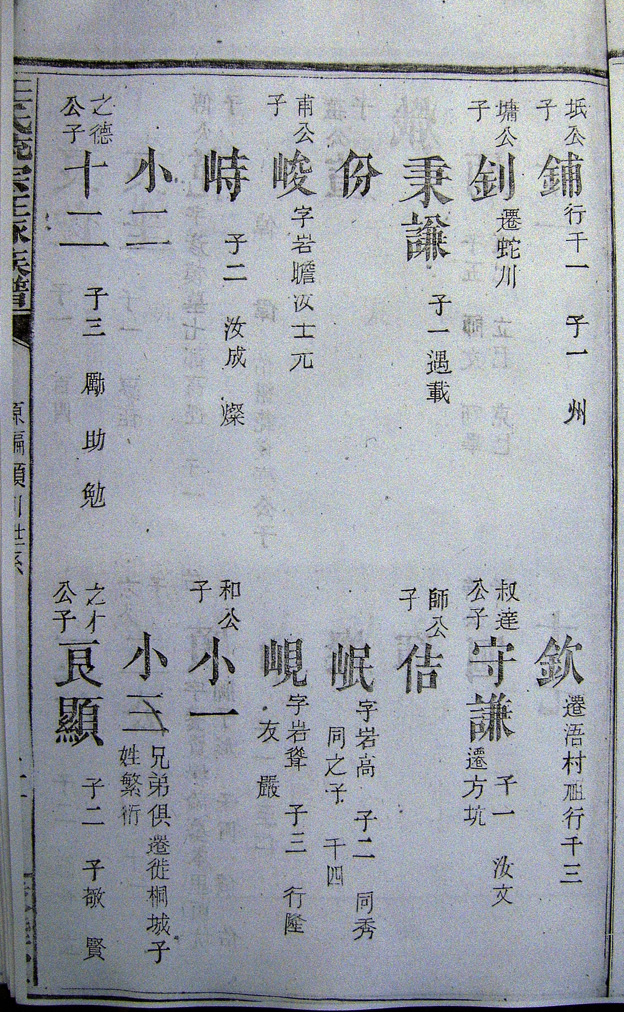 坻公子 鋪 行千一 子一 州
欽 遷浯村祖行千三
墉公子 釗 遷蛇川
叔達公子 守謙 遷方坑 子一 汝文
秉謙 子一遇載
師公子 佶
份
岷 字岩高 子二 同秀 同之子 千四
甫公子 峻 字岩瞻汝士元
峴 字岩聳 子三 行隆 友 嚴
峙 子二 汝成 燦
和公子 小一
小二
小三 兄弟俱遷徙桐城子姓繁衍
之德公子 十二 子三 勵 助 勉
之才公子 良顯 子二 子敬 賢
氏統宗世系族譜